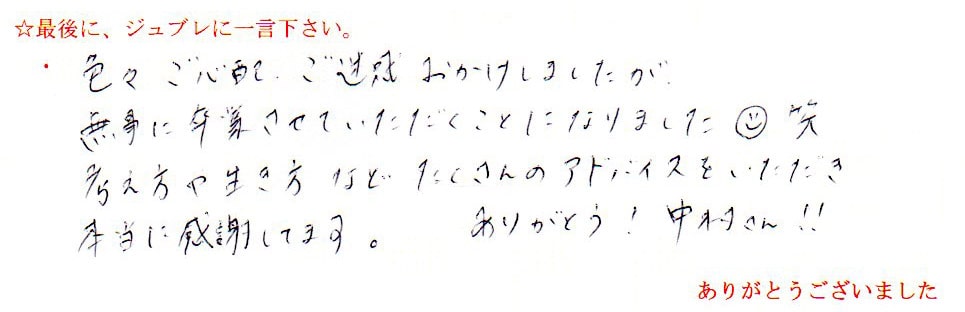 ☆最後に、ジュブレに一言下さい。
・色々ご心配、ご迷惑おかけしましたが、
無事に卒業させていただくことになりました☺笑
考え方や生き方などたくさんのアドバイスをいただき
本当に感謝してます。 ありがとう!中村さん!!
ありがとうございました